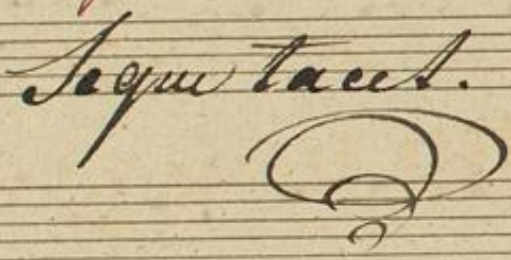 Segue tacet.